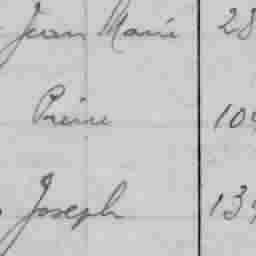 Jean Marie 28
Pierre 104
Joseph 139